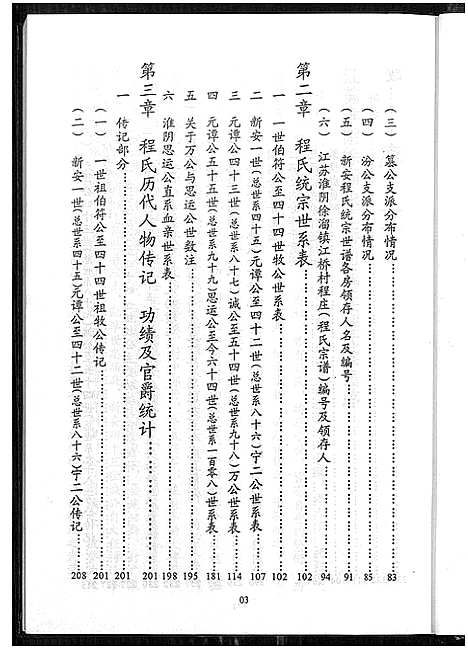 (三) 篁公支派分布情况 83
(四) 汾公支派分布情况 85
(五) 新安程氏统宗世谱各房领存人名及编号 91
(六) 江苏淮阴徐溜镇江桥村程庄(程氏宗谱)编号及领存人 94
第二章 程氏统宗世系表 102
一 一世伯符公至四十四世牧公世系表 102
二 新安一世(总世系四十五)元谭公至四十二世(总世系八十六)宁二公世系表 107
三 元谭公四十三世(总世系八十七)诚公至五十四世(总世系九十八)万公世系表 114
四 元谭公五十五世(总世系九十九)思运公至今六十四世(总世系一百零八)世系表 181
五 关于万公与思运公世数注 195
六 淮阴思运公直系血亲世系表 198
第三章 程氏历代人物传记 功绩及官爵统计 201
一 传记部分 201
(一) 一世祖伯符公至四十四世祖牧公传记 201
(二) 新安一世(总世系四十五)元谭公至四十二世(总世系八十六)宁二公传记 208
03